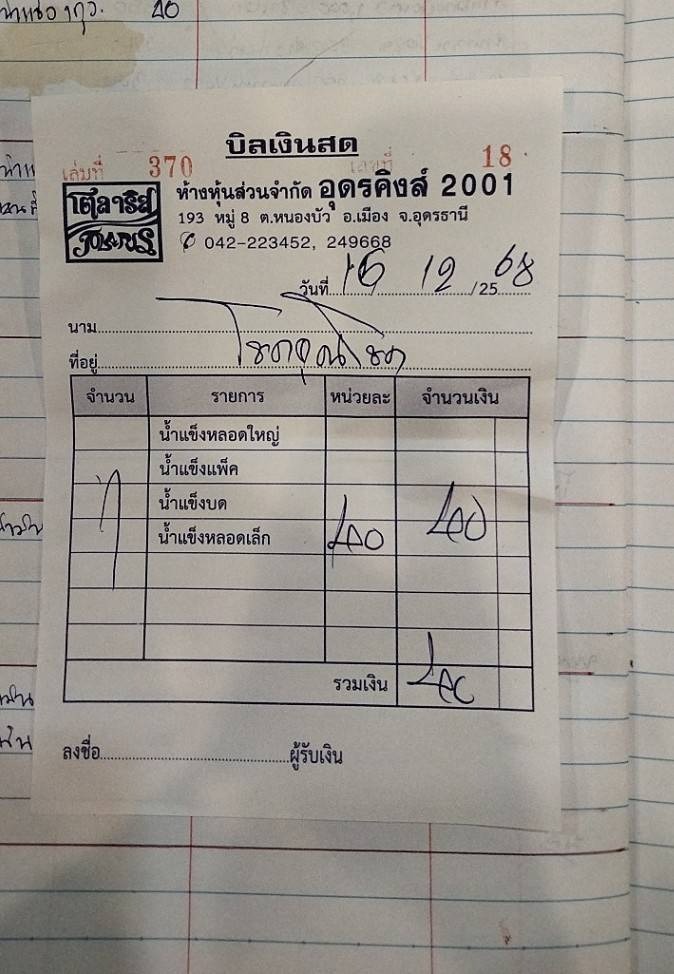 40
บิลเงินสด
เล่มที่ 370 เลขที่ 18
โพลาริส ห้างหุ้นส่วนจำกัด อุดรคิงส์ 2001
POLARIS 193 หมู่ 8 ต.หนองบัว อ.เมือง จ.อุดรธานี
042-223452, 249668
วันที่ 16 12 /2568
นาม
ที่อยู่
จำนวน รายการ หน่วยละ จำนวนเงิน
น้ำแข็งหลอดใหญ่
น้ำแข็งแพ็ค
น้ำแข็งบด
1 น้ำแข็งหลอดเล็ก 40 40
รวมเงิน 40
ลงชื่อ ผู้รับเงิน